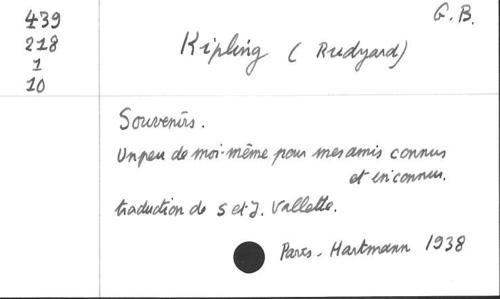 439
218
1
10
G. B.
Kipling ( Rudyard)
Souvenirs.
Un peu de moi-même pour mes amis connus
et inconnus.
traduction de S et J. Vallette.
Paris - Hartmann 1938